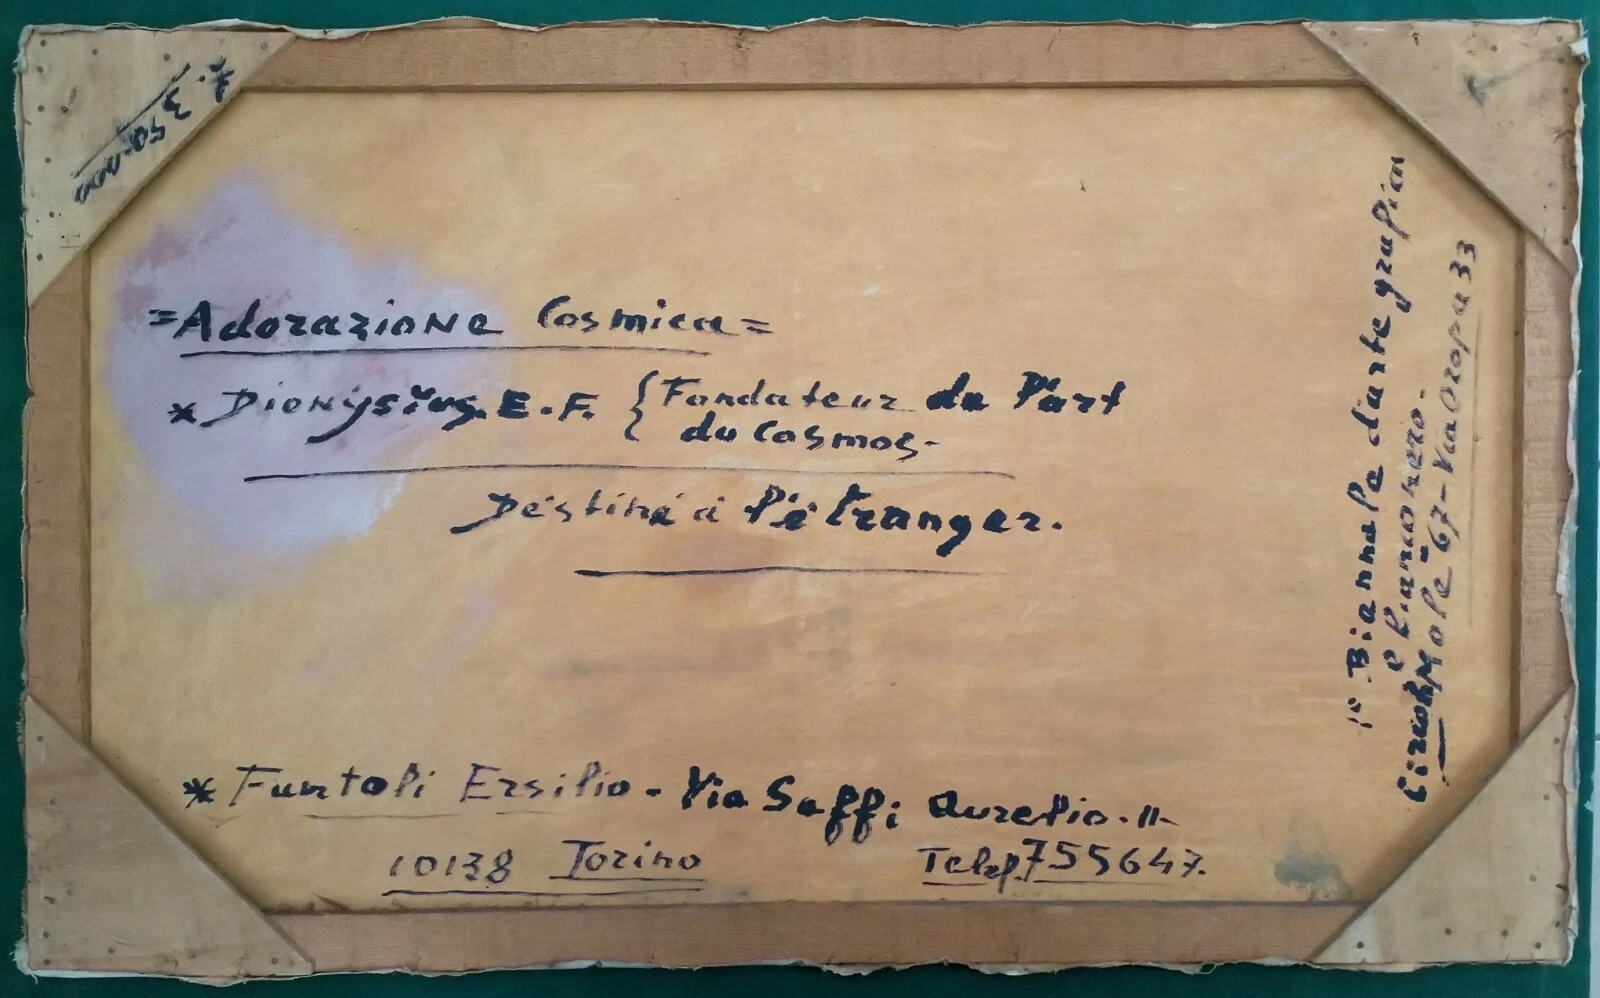 £. 350.000
=Adorazione Cosmica=
* Dionysius. E. F. { Fondateur de l'art
du Cosmos-
Destiné à l'étranger.
* Funtoli Ersilio - Via Saffi Aurelio. 11-
10138 Torino
Telef. 755647.
1° Biannale d'arte grafica
e bianconero-
Circolo Mole "67- Via Oropa 33